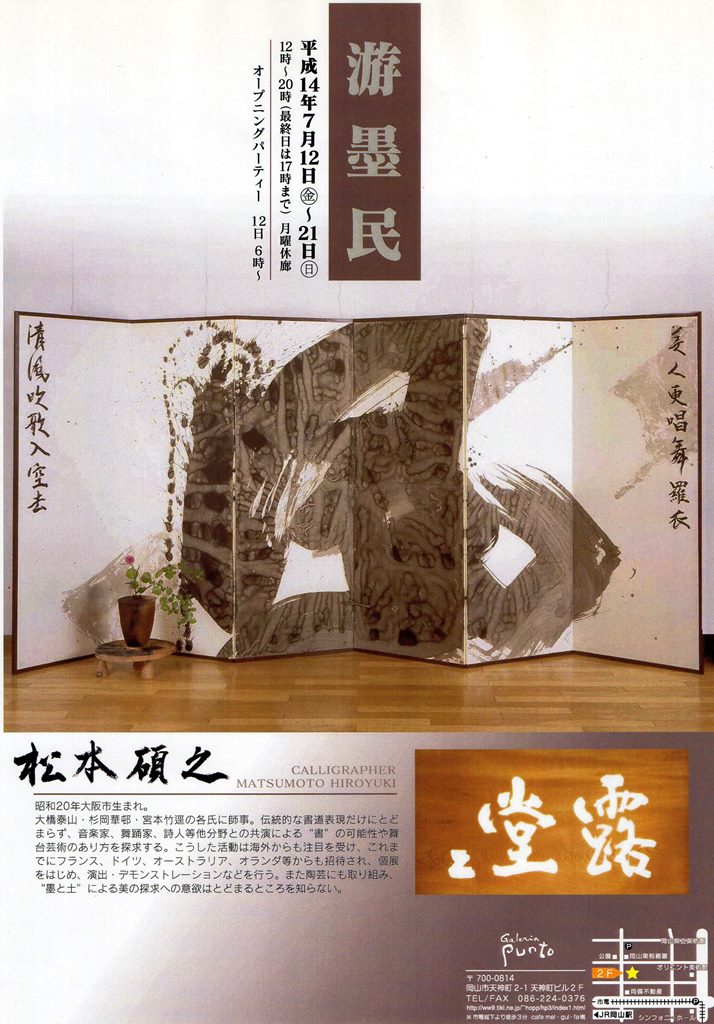 游墨民
平成14年7月12日㊎〜21日㊐
12時〜20時(最終日は17時まで) 月曜休廊
オープニングパーティー 12日 6時〜
美人更唱舞羅衣
清風吹歌入空去
松本碩之
CALLIGRAPHER
MATSUMOTO HIROYUKI
昭和20年大阪市生まれ。
大橋泰山・杉岡華邨・宮本竹逕の各氏に師事。伝統的な書道表現だけにとど
まらず、音楽家、舞踊家、詩人等他分野との共演による“書”の可能性や舞
台芸術のあり方を探求する。こうした活動は海外からも注目を受け、これま
でにフランス、ドイツ、オーストラリア、オランダ等からも招待され、個展
をはじめ、演出・デモンストレーションなどを行う。また陶芸にも取り組み、
“墨と土”による美の探求への意欲はとどまるところを知らない。
露堂々
Galeria
punto
〒700-0814
岡山市天神町2-1 天神町ビル2F
TEL/FAX 086-224-0376
http://ww9.tiki.ne.jp/~hopp/hp3/index1.html
※市電城下より徒歩3分 cafe mei・gui・fa横
岡山県立美術館
P
公園
岡山東税務署
2F
オリエント美術館
両備不動産
市電
P
JR岡山駅
シンフォニーホール